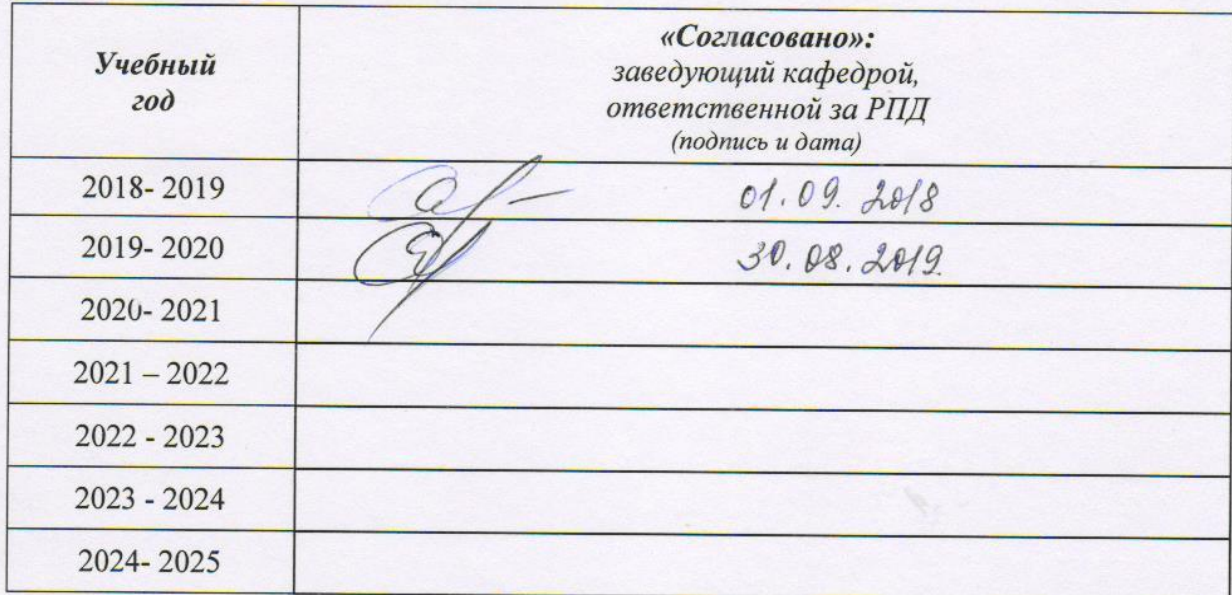 Учебный
год
«Согласовано»:
заведующий кафедрой,
ответственной за РПД
(подпись и дата)
2018- 2019
01.09.2018
2019- 2020
30.08.2019
2020- 2021
2021 – 2022
2022 - 2023
2023 - 2024
2024- 2025